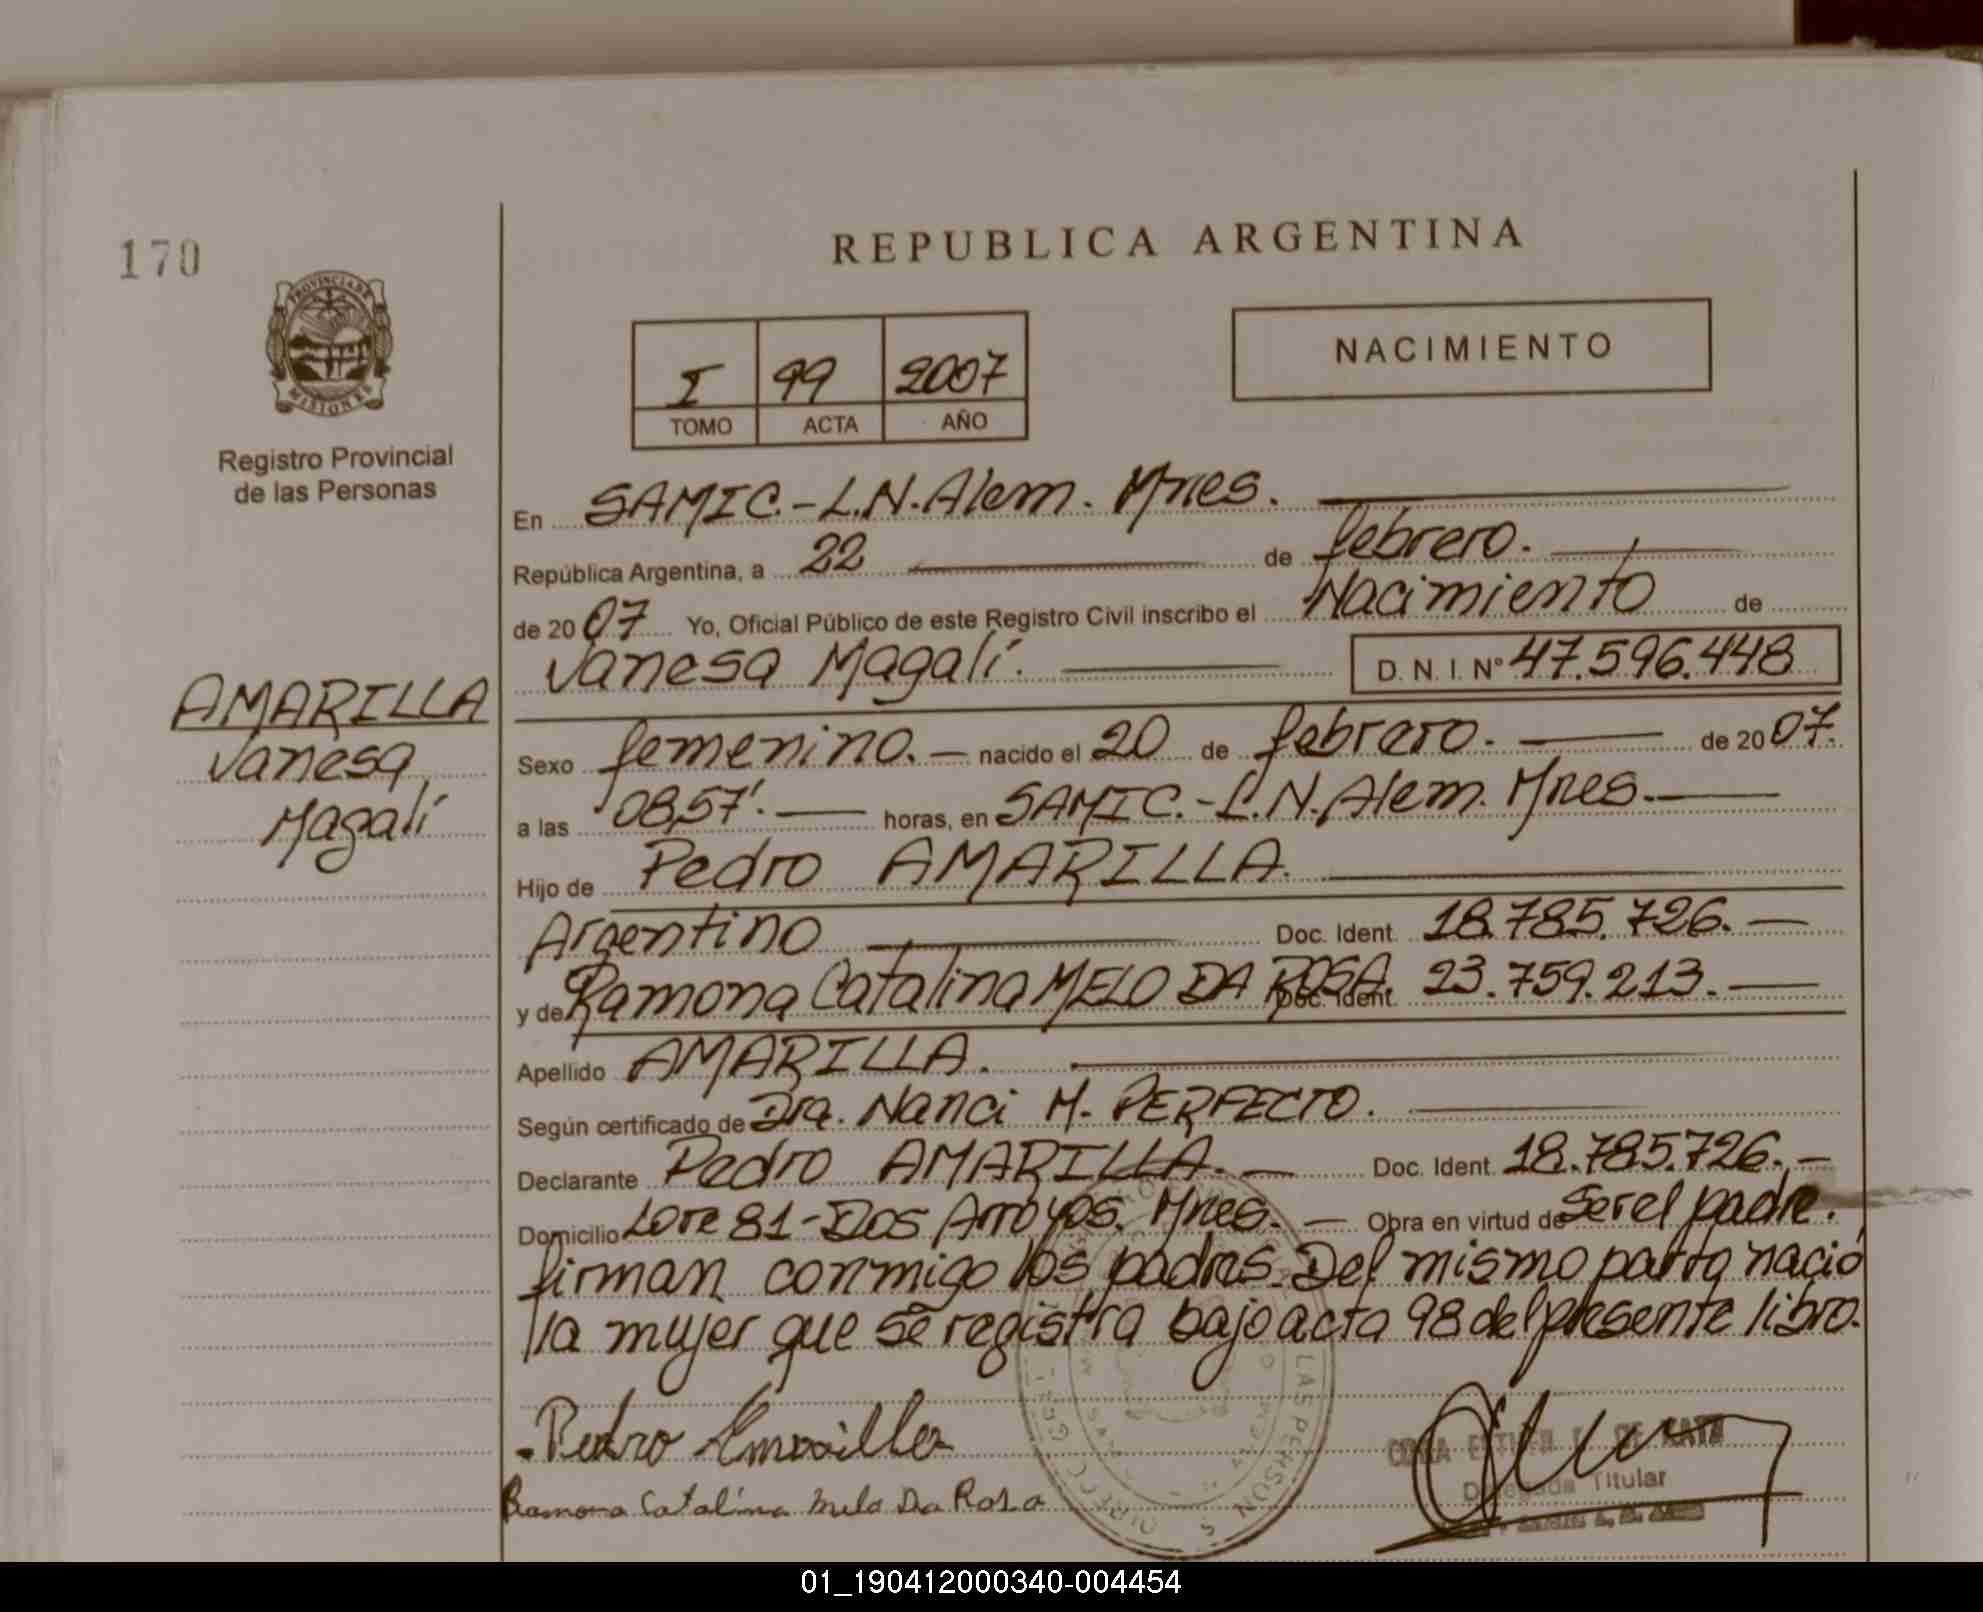 170
REPUBLICA ARGENTINA
PROVINCIA DE
MISIONES
Registro Provincial
de las Personas
I 99 2007
TOMO ACTA AÑO
NACIMIENTO
En SAMIC.-L.N.Alem. Mnes.
República Argentina, a 22 de febrero.
de 2007 Yo, Oficial Público de este Registro Civil inscribo el Nacimiento de
Vanesa Magalí. D. N. I. N° 47.596.448
AMARILLA
Vanesa
Magalí
Sexo femenino. nacido el 20 de febrero. de 2007.
a las 08,57'. horas, en SAMIC.-L.N.Alem. Mnes.
Hijo de Pedro AMARILLA.
Argentino Doc. Ident. 18.785.726.
y de Ramona Catalina MELO DA ROSA. Doc. Ident. 23.759.213.
Apellido AMARILLA.
Según certificado de Dra. Nanci M. PERFECTO.
Declarante Pedro AMARILLA. Doc. Ident. 18.785.726.
Domicilio Lote 81-Dos Arroyos. Mnes. Obra en virtud de ser el padre.
firman conmigo los padres. Del mismo parto nació
la mujer que se registra bajo acta 98 del presente libro.
Pedro Amarilla
Ramona Catalina Melo Da Rosa
Titular
01_190412000340-004454